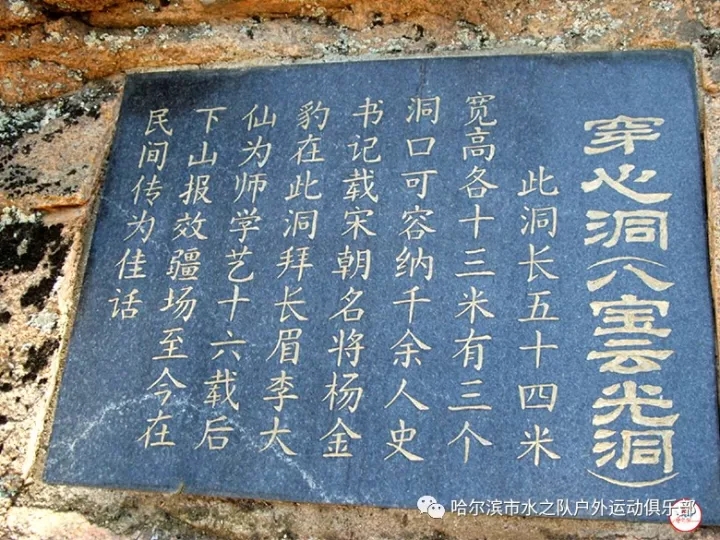 穿心洞(八宝云光洞)
此洞长五十四米
宽高各十三米有三个
洞口可容纳千余人史
书记载宋朝名将杨金
豹在此洞拜长眉李大
仙为师学艺十六载后
下山报效疆场至今在
民间传为佳话
哈尔滨市水之队户外运动俱乐部